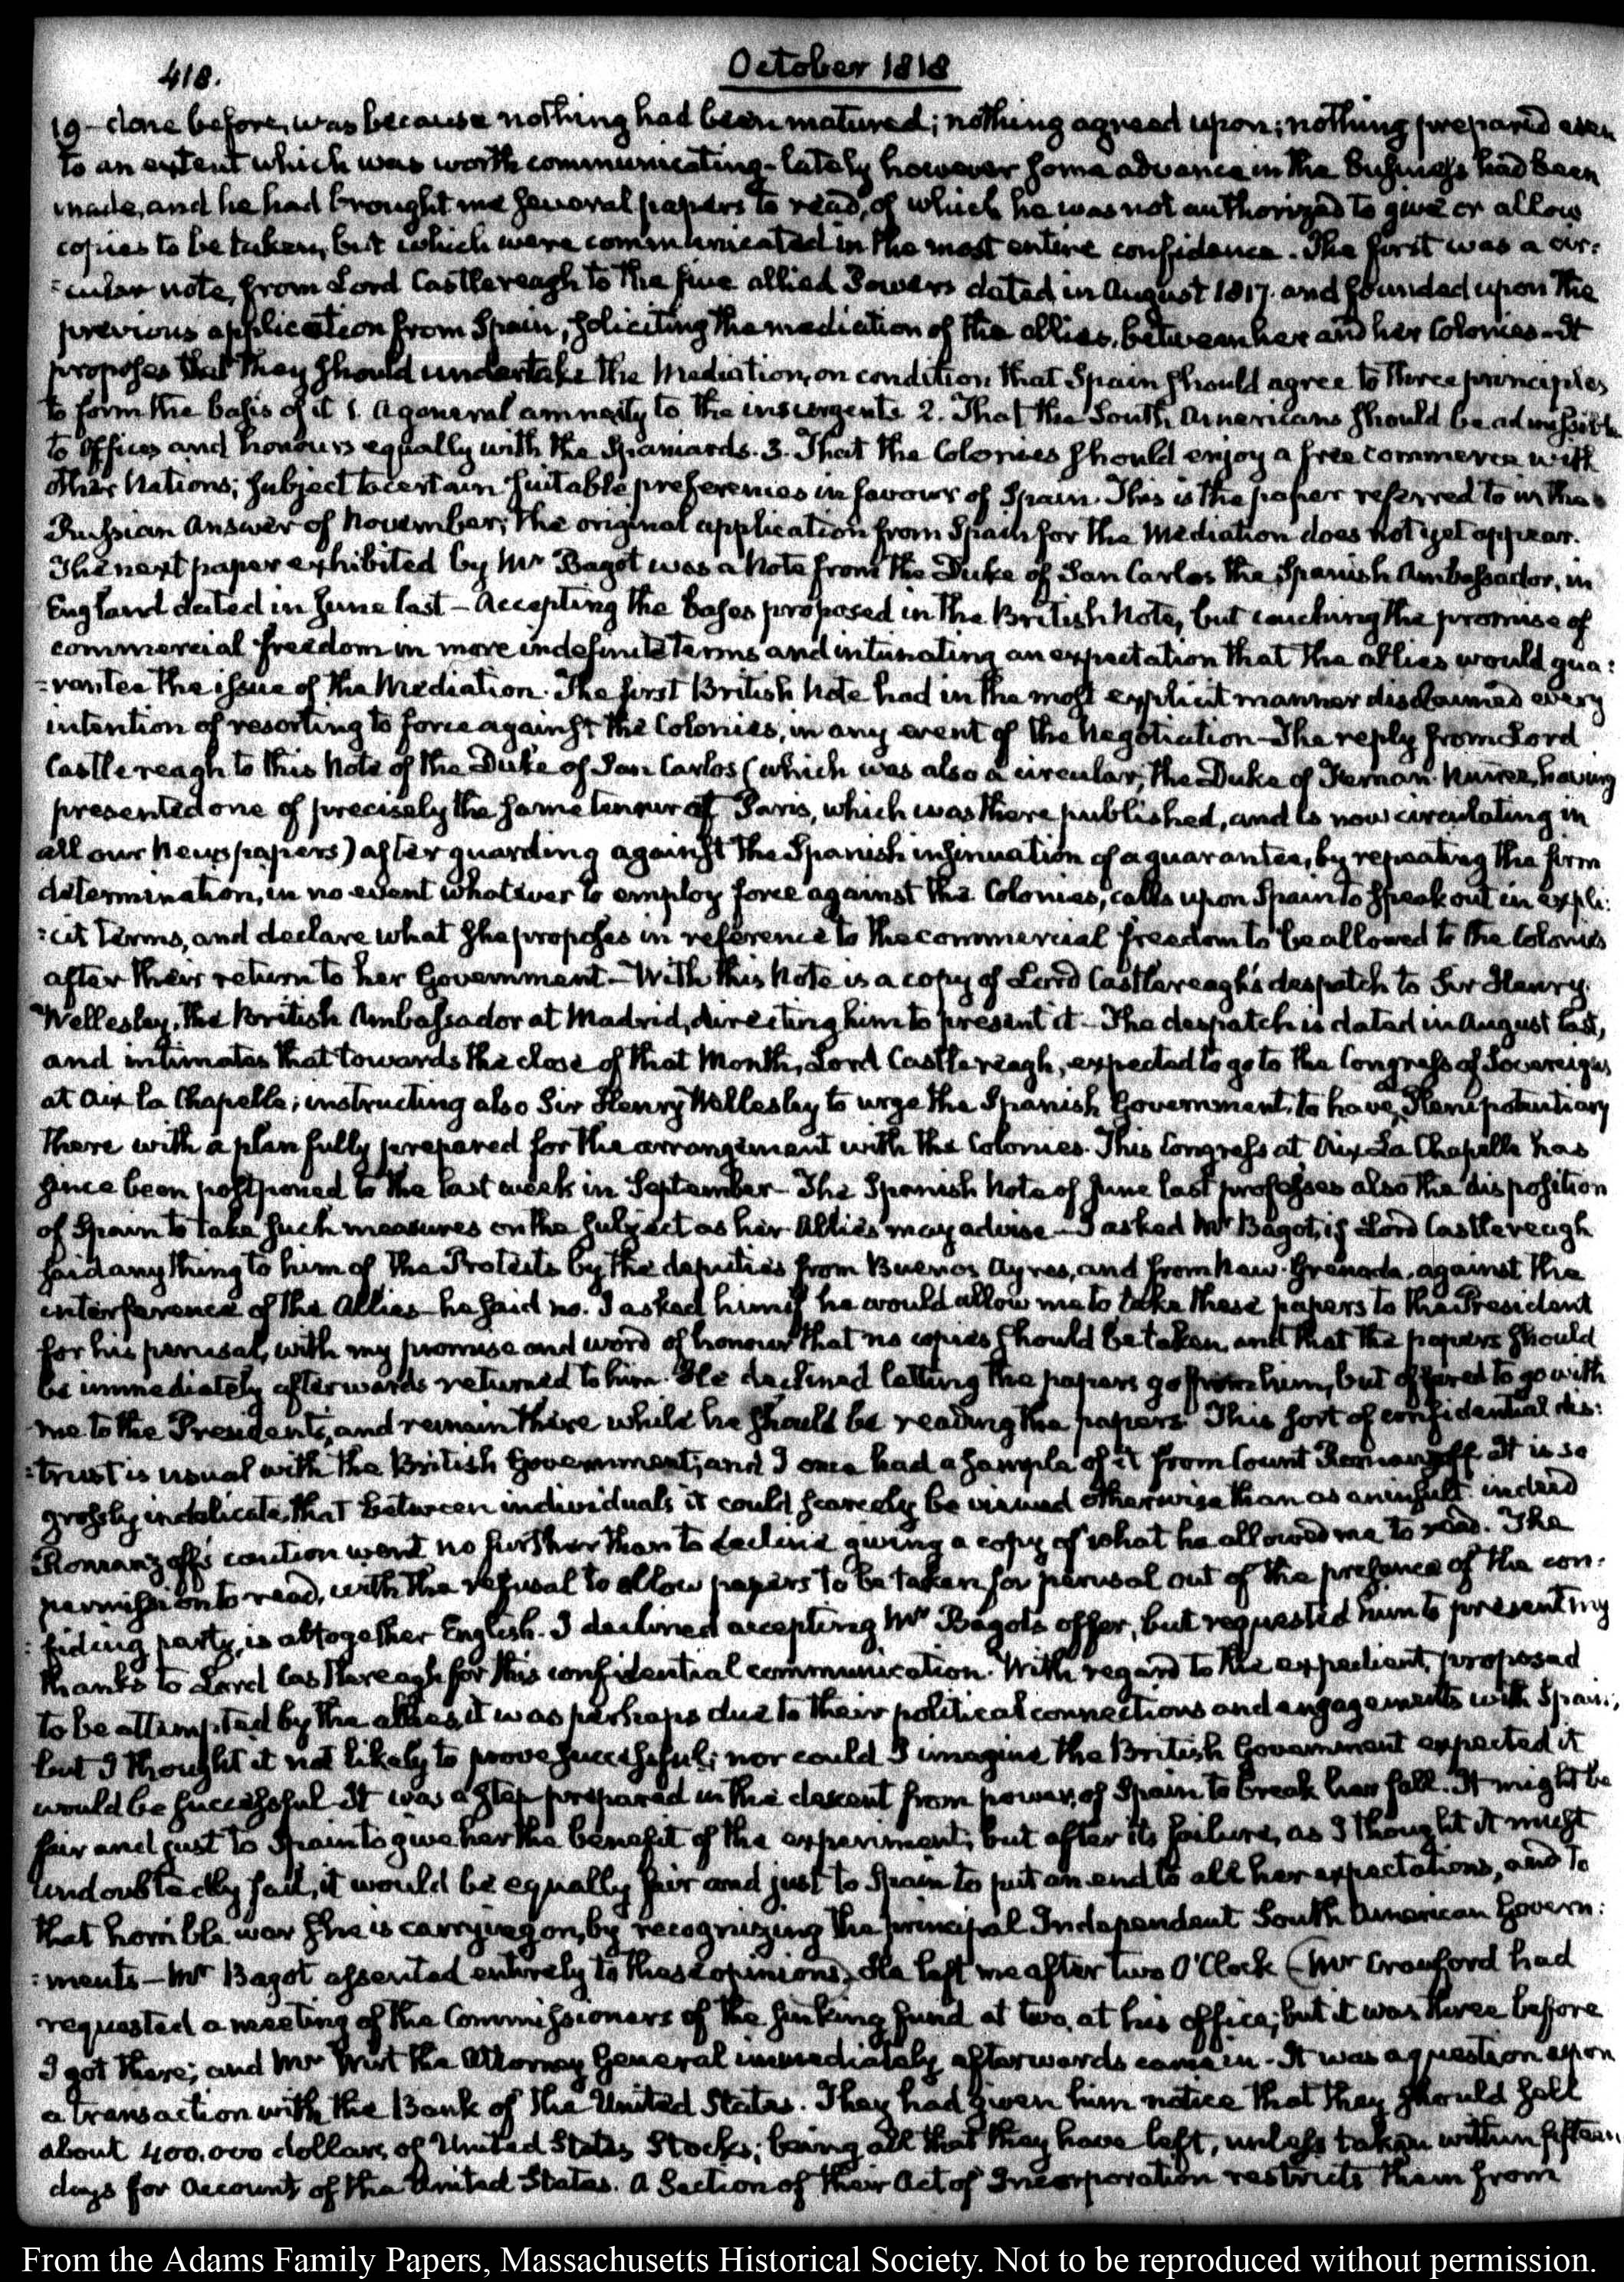 418.
October 1818
19- done before, was because nothing had been matured; nothing agreed upon; nothing prepared even
to an extent which was worth communicating- lately however some advance in the business had been
made, and he had brought me several papers to read, of which he was not authorized to give or allow
copies to be taken, but which were communicated in the most entire confidence. The first was a cir:
:cular note, from Lord Castlereagh to the five allied Powers dated in August 1817. and founded upon the
previous application from Spain, soliciting the mediation of the allies, between her and her Colonies- It
proposes that they should undertake the Mediation, on condition that Spain should agree to three principles
to form the basis of it 1. A general amnesty to the insurgents 2. That the South Americans should be admissible
to Offices and honours equally with the Spaniards. 3. That the Colonies should enjoy a free commerce with
other Nations; subject to certain suitable preferences in favour of Spain. This is the paper referred to in the
Russian Answer of November; the original application from Spain for the Mediation does not yet appear.
The next paper exhibited by Mr Bagot was a Note from the Duke of San Carlos the Spanish Ambassador, in
England dated in June last- Accepting the bases proposed in the British Note, but couching the promise of
commercial freedom in more indefinite terms and intimating an expectation that the allies would gua:
:rantee the issue of the Mediation. The first British Note had in the most explicit manner disclaimed every
intention of resorting to force against the Colonies, in any event of the Negotiation- The reply from Lord
Castlereagh to this Note of the Duke of San Carlos (which was also a circular, the Duke of Fernan Nunez, having
presented one of precisely the same tenour at Paris, which was there published, and is now circulating in
all our Newspapers) after guarding against the Spanish insinuation of a guarantee, by repeating the firm
determination, in no event whatever to employ force against the Colonies, calls upon Spain to speak out in expli:
:cit terms, and declare what she proposes in reference to the commercial freedom to be allowed to the Colonies
after their return to her Government- With this Note is a copy of Lord Castlereagh's despatch to Sir Henry
Wellesley, the British Ambassador at Madrid, directing him to present it- The despatch is dated in August last,
and intimates that towards the close of that Month, Lord Castlereagh, expected to go to the Congress of Sovereigns
at Aix la Chapelle; instructing also Sir Henry Wellesley to urge the Spanish Government, to have Plenipotentiary
there with a plan fully prepared for the arrangement with the Colonies. This Congress at Aix La Chapelle has
since been postponed to the last week in September- The Spanish Note of June last professes also the disposition
of Spain to take such measures on the subject as her Allies may advise- I asked Mr Bagot, if Lord Castlereagh
said any thing to him of the Protests by the deputies from Buenos Ayres, and from New-Grenada, against the
interference of the Allies- he said no. I asked him if he would allow me to take these papers to the President
for his perusal, with my promise and word of honour that no copies should be taken, and that the papers should
be immediately afterwards returned to him. He declined letting the papers go from him, but offered to go with
me to the President's, and remain there while he should be reading the papers. This sort of confidential dis:
:trust is usual with the British Government, and I once had a sample of it from Count Romanzoff. It is so
grossly indelicate, that between individuals it could scarcely be viewed otherwise than as an insult. indeed
Romanzoff's caution went no further than to decline giving a copy of what he allowed me to read. The
permission to read, with the refusal to allow papers to be taken for perusal out of the presence of the con:
:fiding party, is altogether English. I declined accepting Mr Bagot's offer, but requested him to present my
thanks to Lord Castlereagh for this confidential communication. With regard to the expedient, proposed
to be attempted by the allies, it was perhaps due to their political connections and engagements with Spain;
but I thought it not likely to prove successful; nor could I imagine the British Government expected it
would be successful It was a step prepared in the descent from power, of Spain to break her fall. It might be
fair and just to Spain to give her the benefit of the experiment; but after its failure, as I thought it must
undoubtedly fail, it would be equally fair and just to Spain to put an end to all her expectations, and to
that horrible war she is carrying on, by recognizing the principal Independent South American Govern:
:ments- Mr Bagot assented entirely to these opinions. He left me after two O'Clock (Mr Crawford had
requested a meeting of the Commissioners of the sinking fund at two, at his office; but it was three before
I got there; and Mr Wirt the Attorney General immediately afterwards came in- It was a question upon
a transaction with the Bank of the United States. They had given him notice that they should sell
about 400.000 dollars, of United States Stocks; being all that they have left, unless taken within fifteen
days for account of the United States. A Section of their Act of Incorporation restricts them from
From the Adams Family Papers, Massachusetts Historical Society. Not to be reproduced without permission.